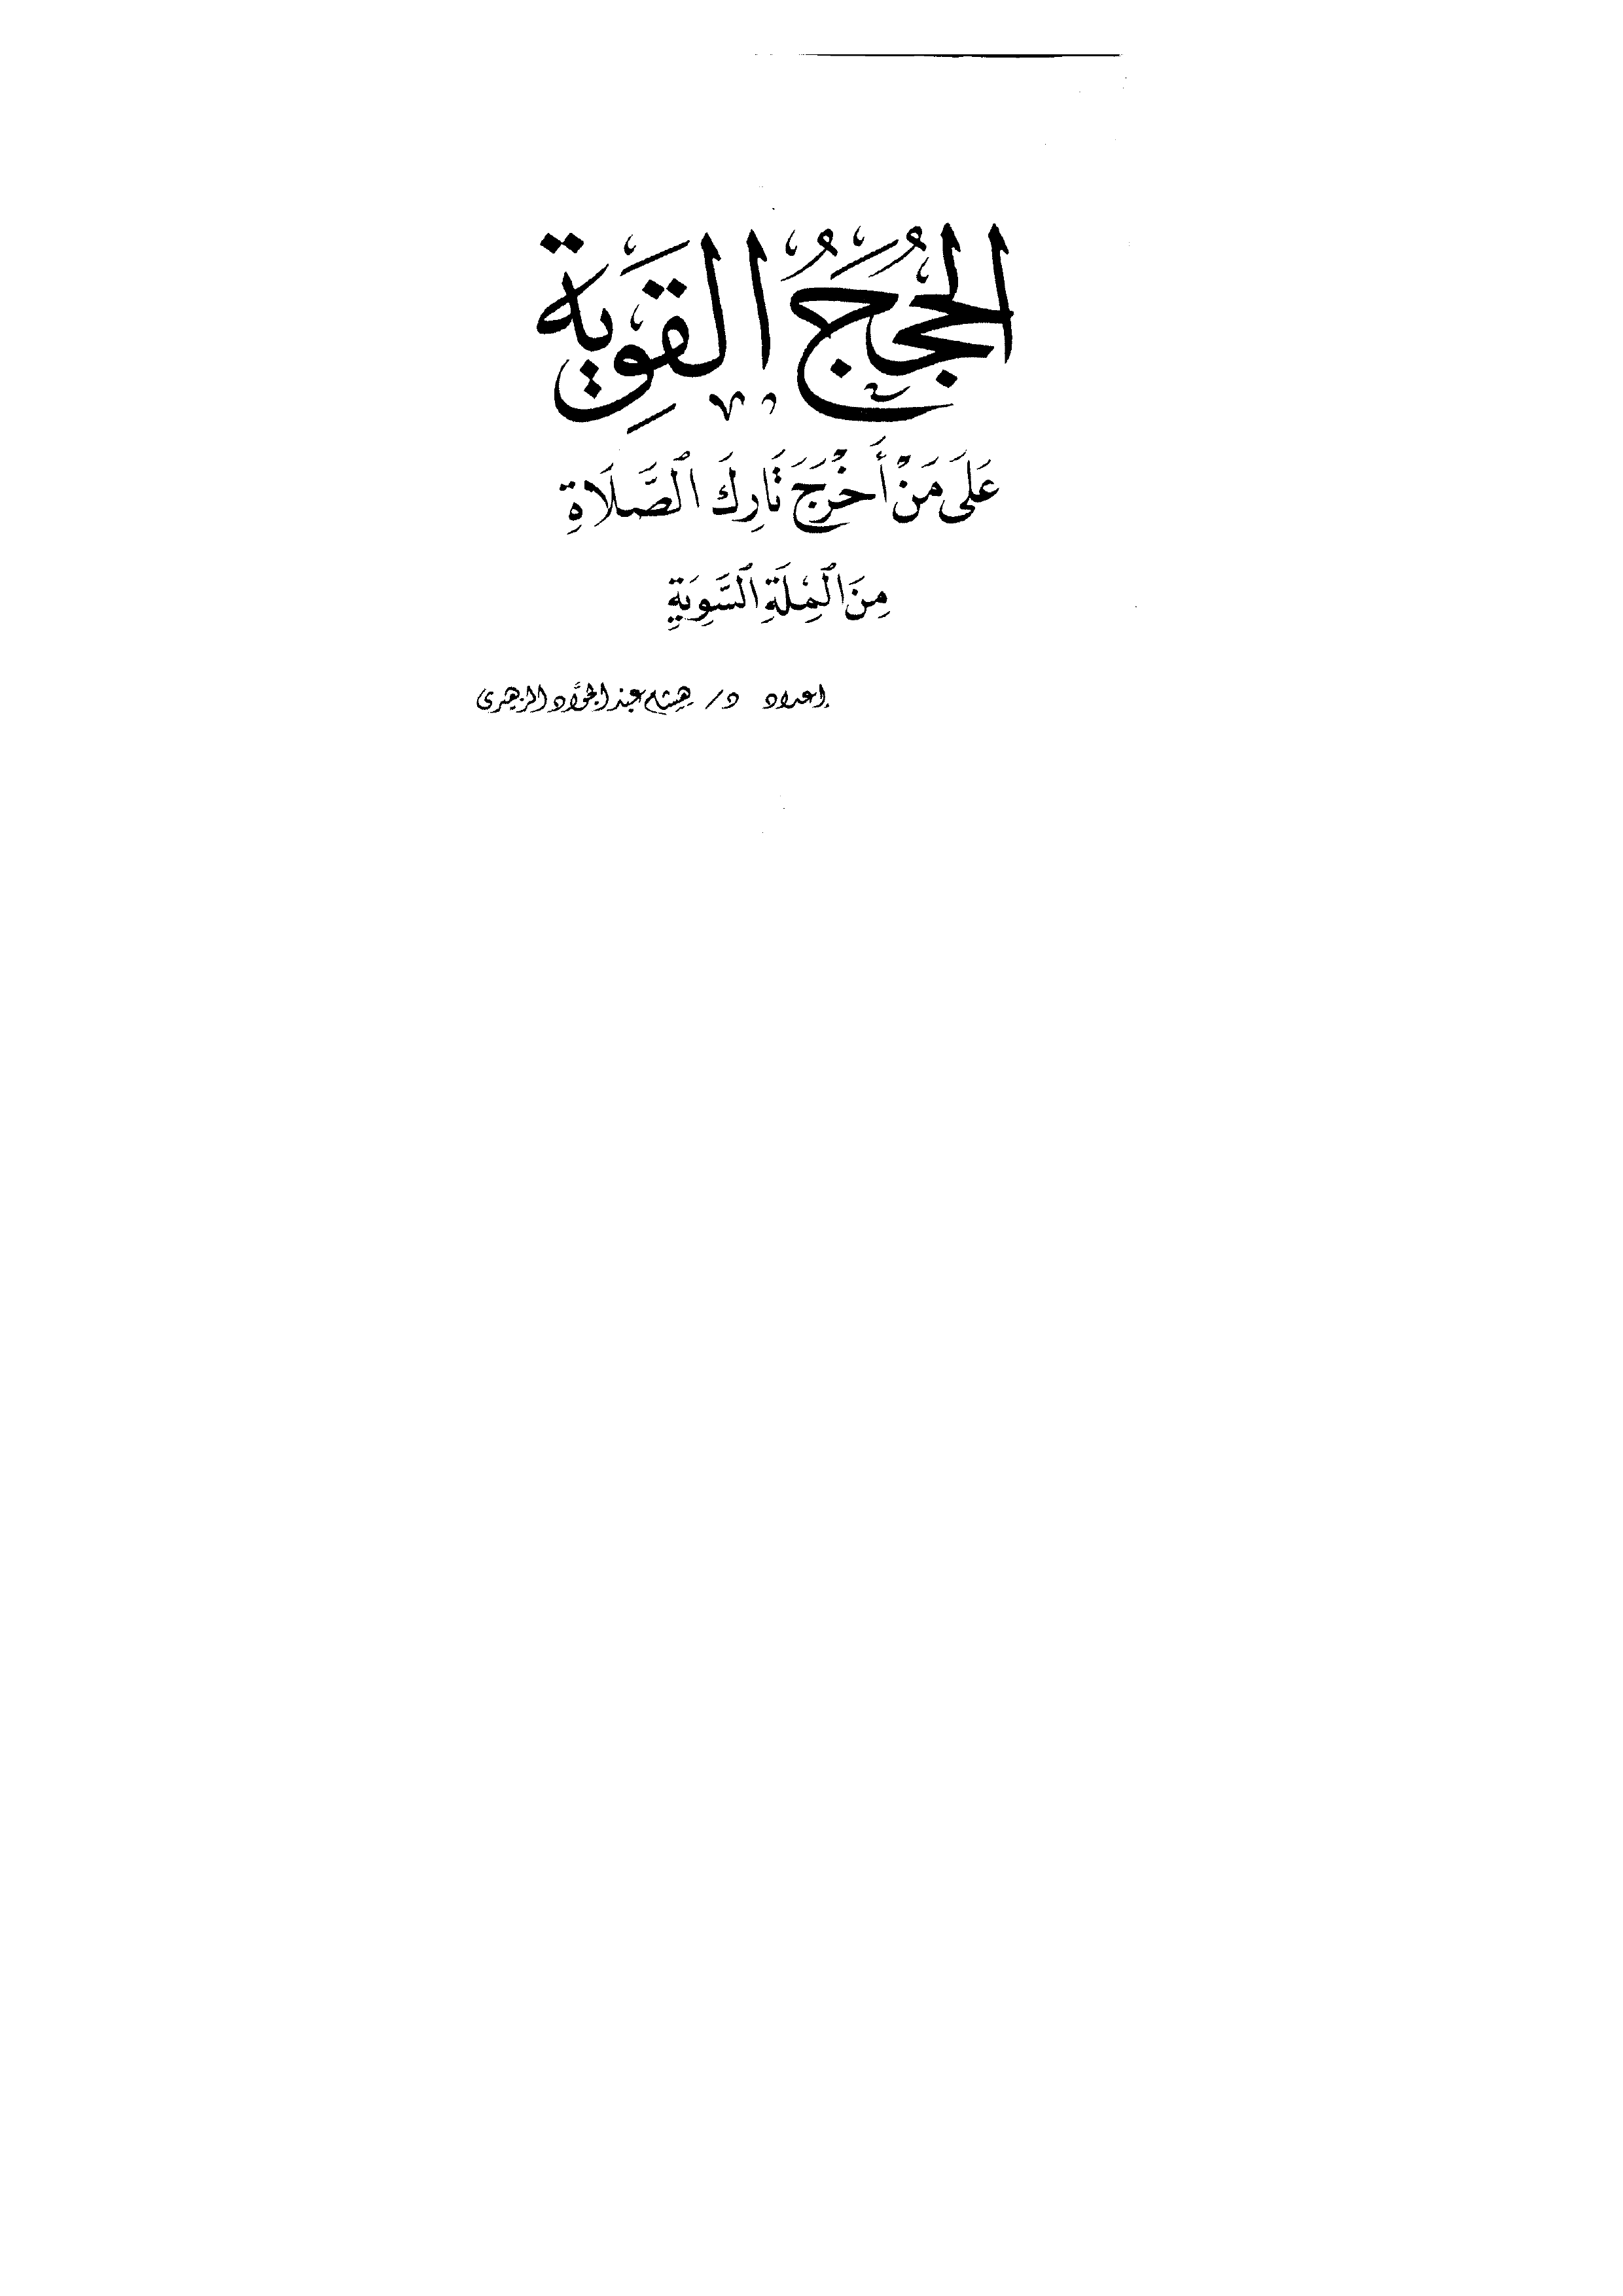 الحُجَجُ القَوِيَة
عَلَى مَنْ أَخْرَجَ تَارِكَ الصَّلَاةِ
مِنَ الْمِلَةِ السَّوِيَةِ
إعداد د/ هشام عبد الجواد الزهيرى